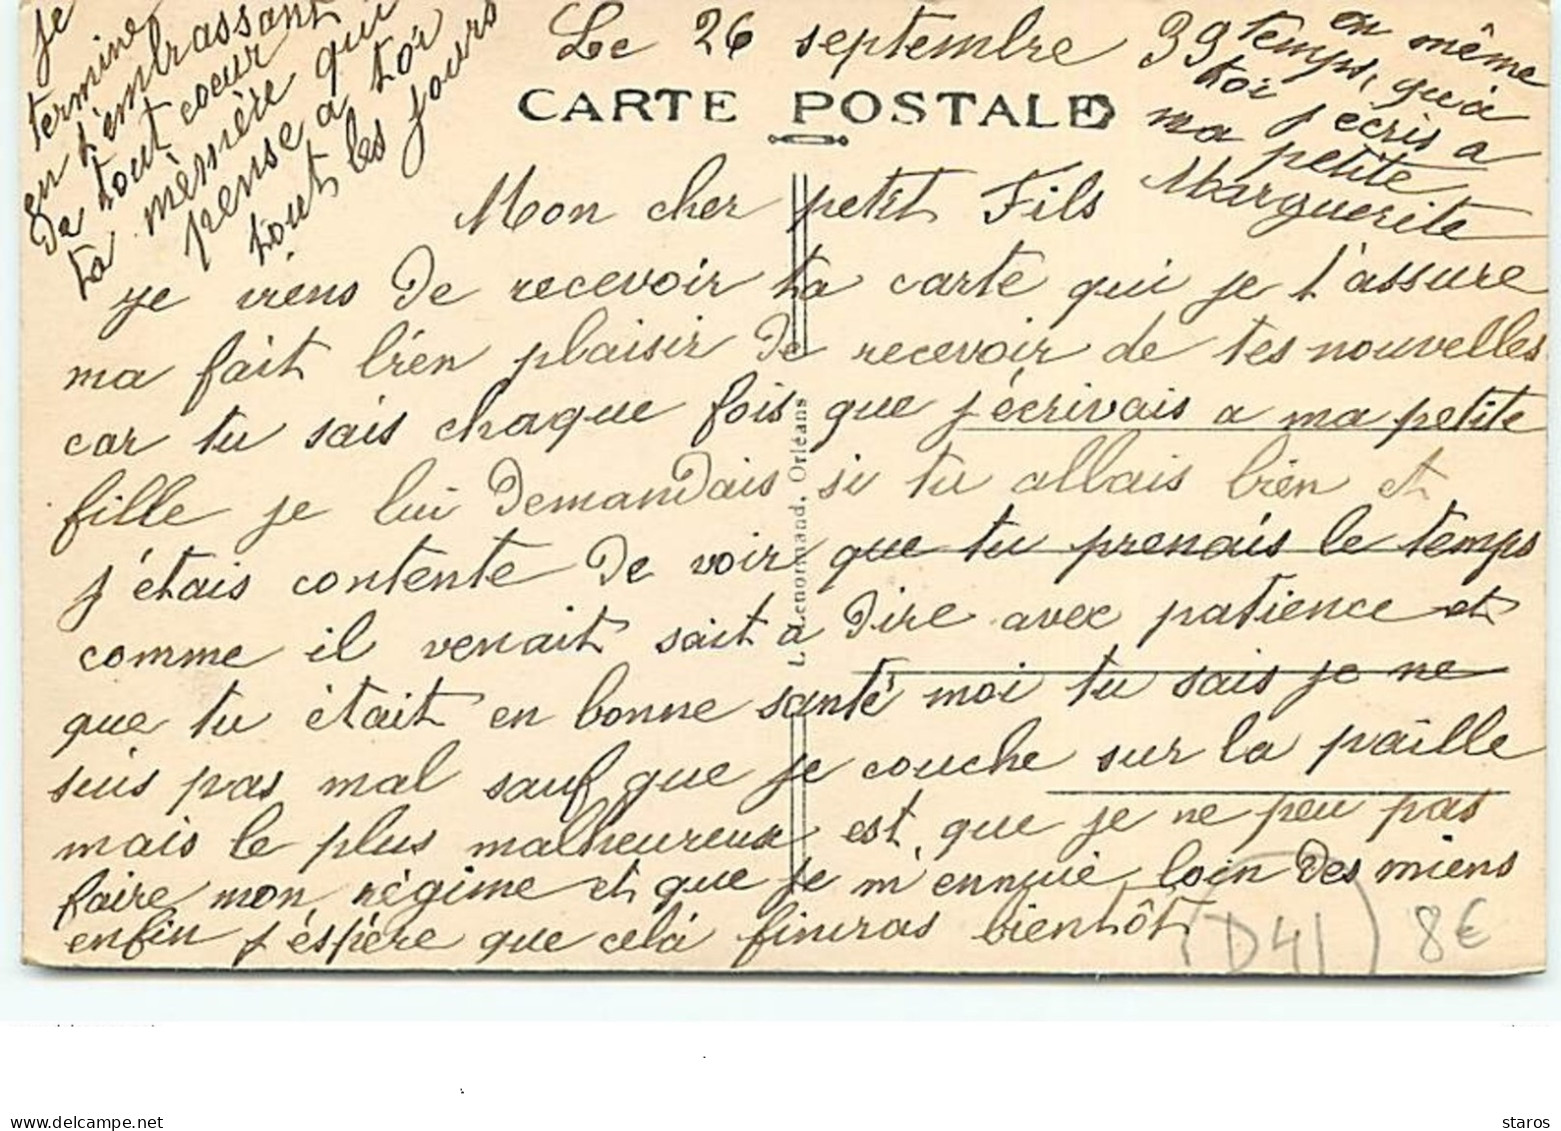 Le 26 septembre 39
CARTE POSTALE
Mon cher petit Fils
je viens de recevoir ta carte qui je t'assure
ma fait bien plaisir de recevoir de tes nouvelles
car tu sais chaque fois que j'écrivais a ma petite
fille je lui demandais si tu allais bien et
j'étais contente de voir que tu prenais le temps
comme il venait sait a dire avec patience et
que tu était en bonne santé moi tu sais je ne
suis pas mal sauf que je couche sur la paille
mais le plus malheureux est que je ne peu pas
faire mon régime et que je m'ennuie loin des miens
enfin j'éspére que celà finiras bientôt
je
termine
en t'embrassant
de tout coeur
ta mèmère qui
pense a toi
tout les jours
en même
temps, qu'à
toi j'écris a
ma petite
Marguerite
L. Lenormand, Orléans
(D41) 8€
delcampe.net
staros